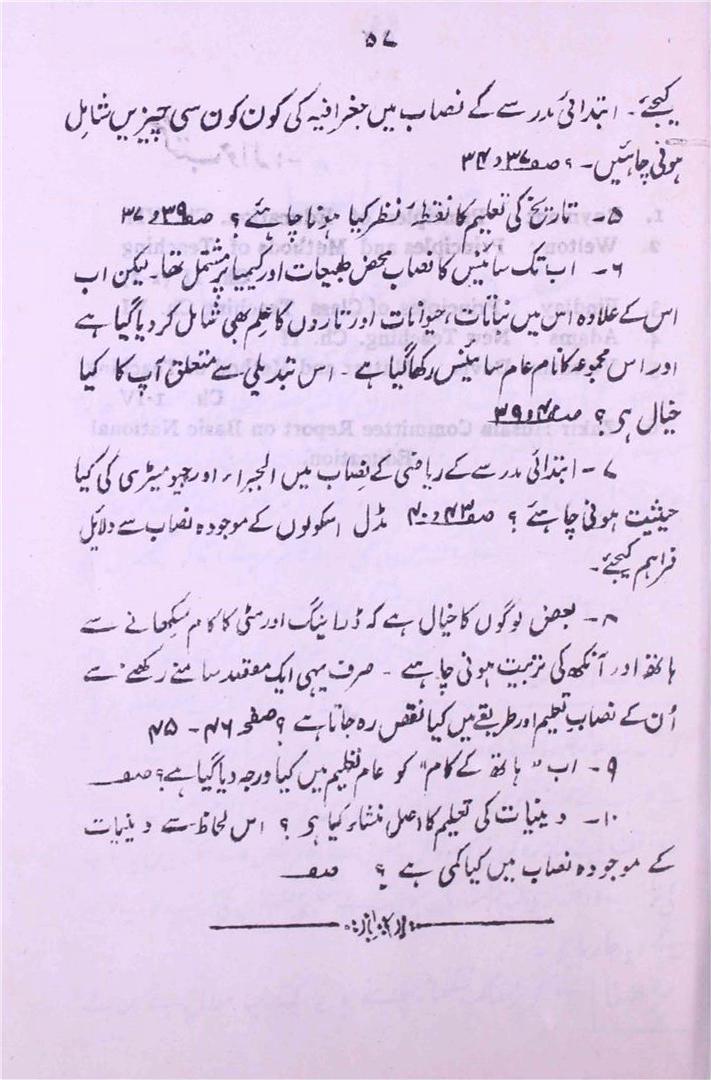 ۵۷
کیجئے۔ ابتدائی مدرسے کے نصاب میں جغرافیہ کی کون کون سی چیزیں شامل
ہونی چاہئیں۔ ؟ صفہ ۳۷ و ۳۴
۵۔ تاریخ کی تعلیم کا نقطۂ نظر کیا ہونا چاہئے ؟ صفہ ۳۹ و ۳۷
۶۔ اب تک سائنس کا نصاب محض طبیعات اور کیمیا پر مشتمل تھا۔ لیکن اب
اس کے علاوہ اس میں نباتات، حیوانات اور تاروں کا علم بھی شامل کر دیا گیا ہے
اور اس مجموعہ کا نام عام سائنس رکھا گیا ہے۔ اس تبدیلی سے متعلق آپ کا کیا
خیال ہی ؟ صفہ ۴۰ و ۳۹
۷۔ ابتدائی مدرسے کے ریاضی کے نصاب میں الجبراء اور جیومیٹری کی کیا
حیثیت ہونی چاہئے ؟ صفہ ۴۳ و ۴۰ مڈل اسکولوں کے موجودہ نصاب سے دلایل
فراہم کیجئے۔
۸۔ بعض لوگوں کا خیال ہے کہ ڈرائینگ اور مٹی کا کام سکھانے سے
ہاتھ اور آنکھ کی تربیت ہونی چاہے ۔ صرف یہی ایک مقصد سامنے رکھنے سے
اُن کے نصابِ تعلیم اور طریقے میں کیا نقص رہ جاتا ہے ؟ صفحہ ۴۶ - ۴۵
۹۔ اب "ہاتھ کے کام" کو عام تعلیم میں کیا درجہ دیا گیا ہے ؟ صفہ
۱۰۔ دینیات کی تعلیم کا اصل منشاء کیا ہی ؟ اس لحاظ سے دینیات
کے موجودہ نصاب میں کیا کمی ہے ؟ صفہ